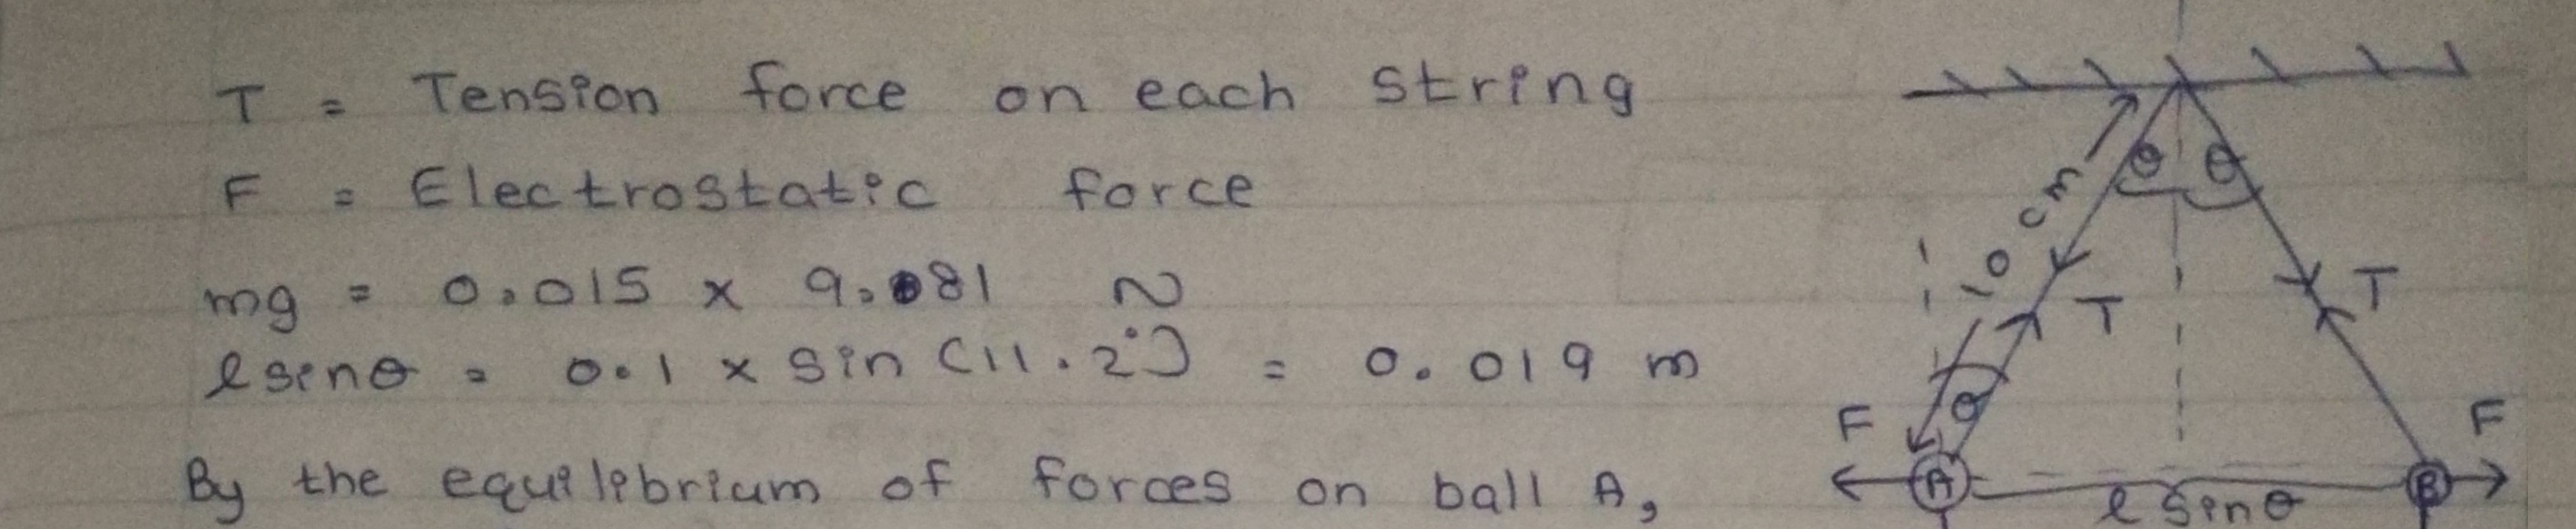 T = Tension force on each string
F = Electrostatic force
mg = 0.015 x 9.081 N
lsinθ = 0.1 x sin (11.2°) = 0.019 m
By the equilibrium of forces on ball A,
θ θ
10 cm
T T
θ
F F
A B
l sinθ